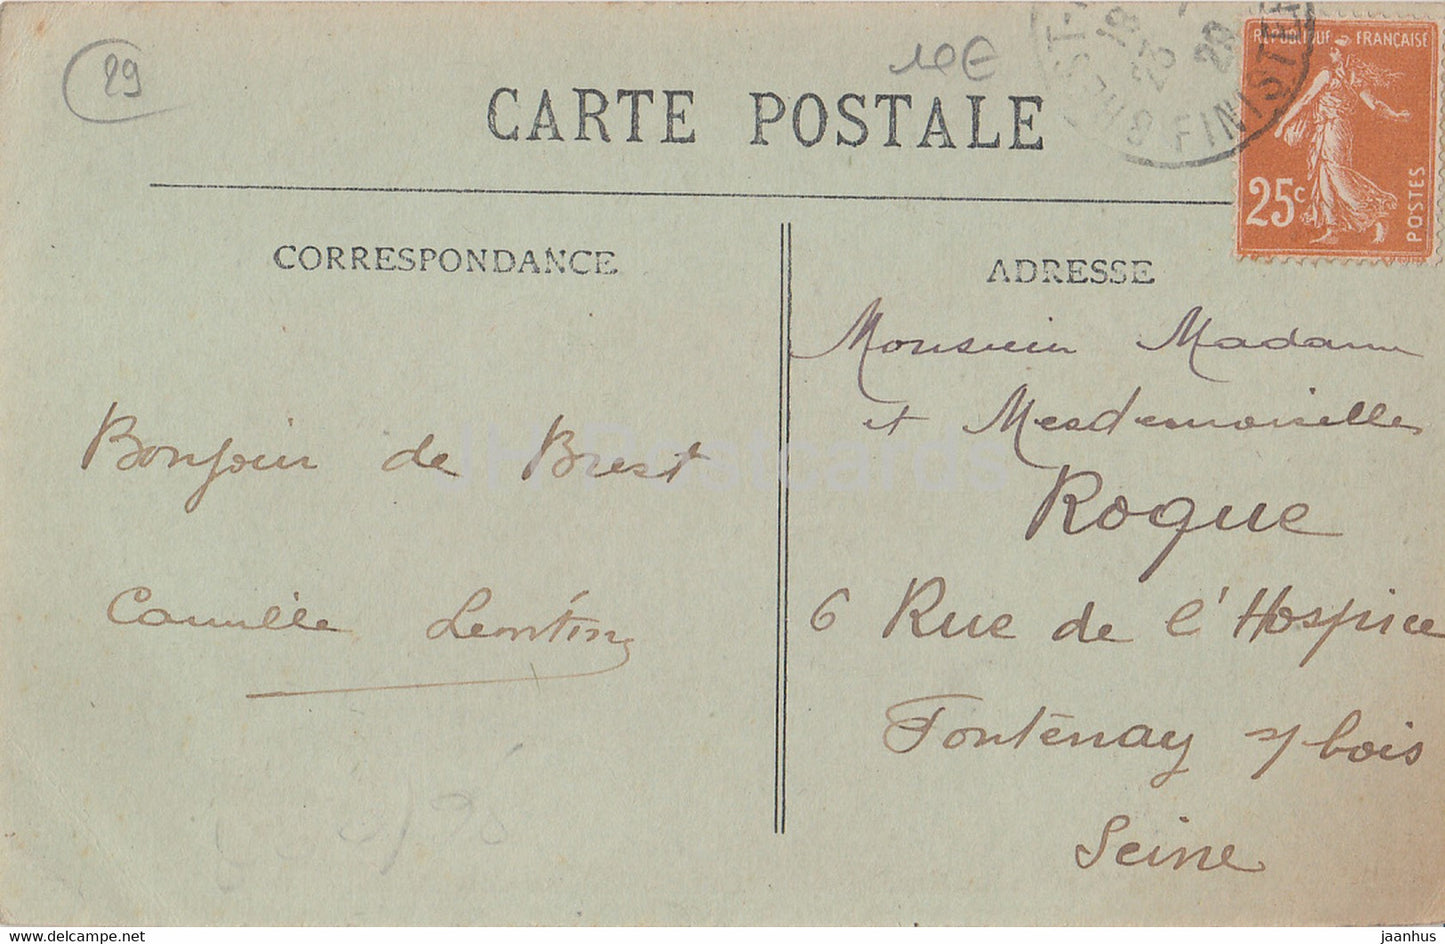 29
10€
CARTE POSTALE
BREST FINISTERE
18
23
29
REPUBLIQUE FRANÇAISE
25c
POSTES
CORRESPONDANCE
Bonjour de Brest
Camille
ADRESSE
Monsieur Madame
et Mesdemoiselles
Roque
6 Rue de l'Hospice
Fontenay s/ bois
Seine
JH Postcards
jaanhus
jaanhus